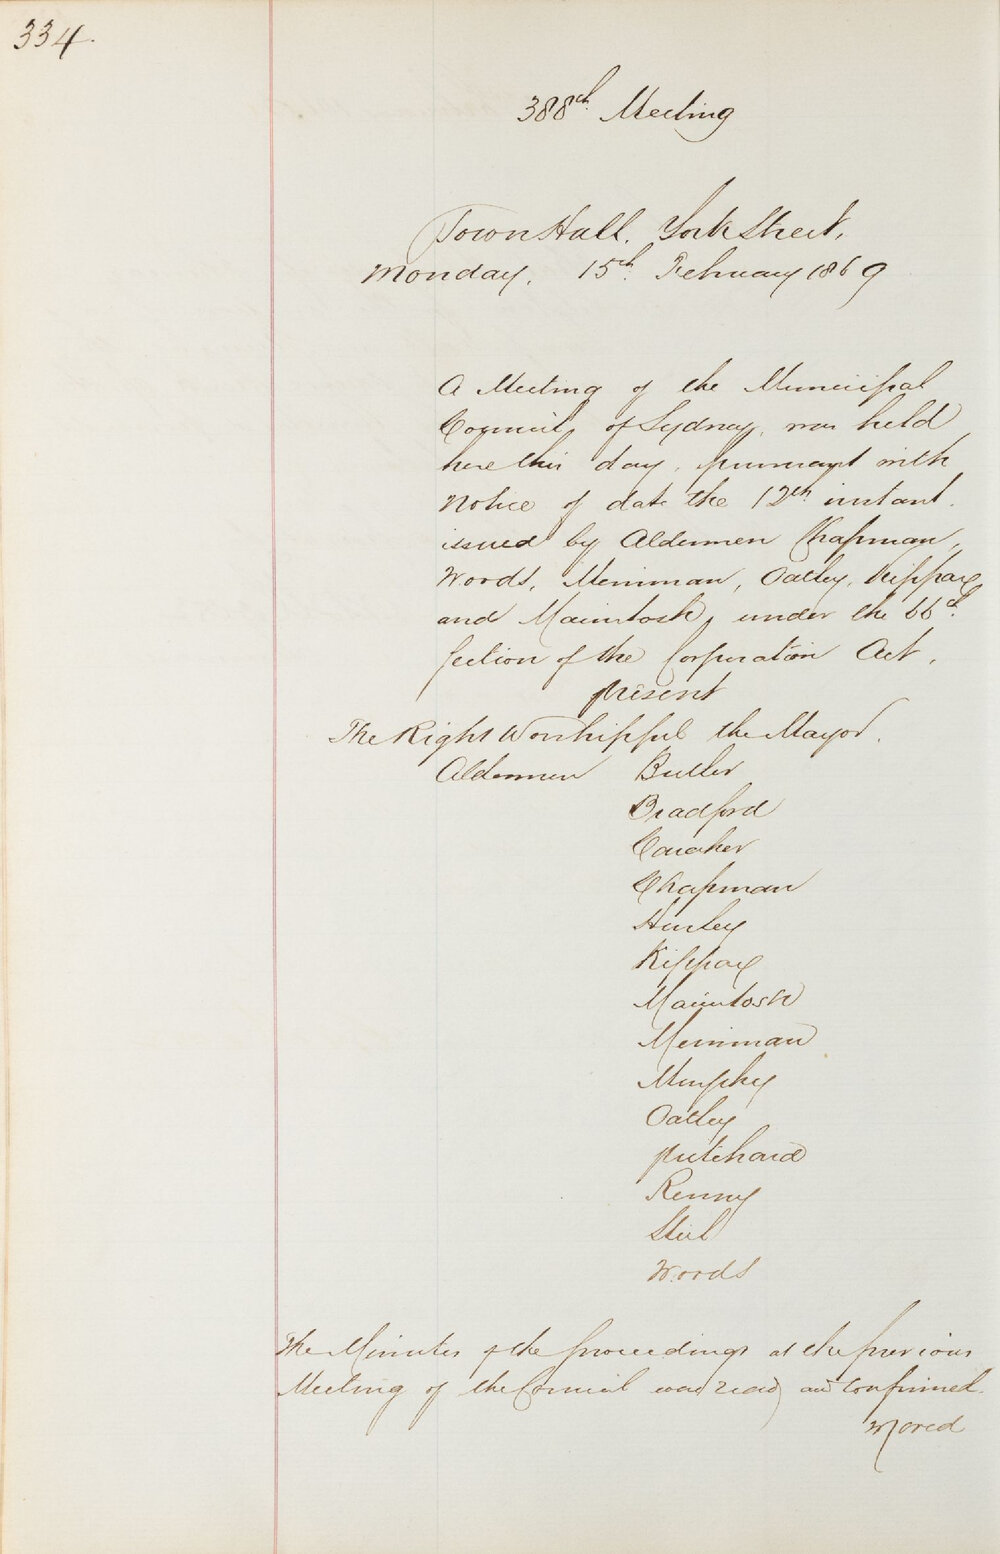 334.
388th Meeting
Town Hall. York Street,
Monday, 15th February 1869
A Meeting of the Municipal
Council, of Sydney, was held
here this day, pursuant with
Notice of date the 12th instant.
issued by Aldermen Chapman,
Woods, Merriman, Oatley, Kippax,
and Macintosh, under the 66th
Section of the Corporation Act.
present
The Right Worshipful the Mayor.
Aldermen Butler
Bradford
Caraher
Chapman
Hurley
Kippax
Macintosh
Merriman
Murphy
Oatley
Pritchard
Renny
Steel
Woods
The Minutes of the proceedings at the previous
Meeting of the Council was read and confirmed.
Moved